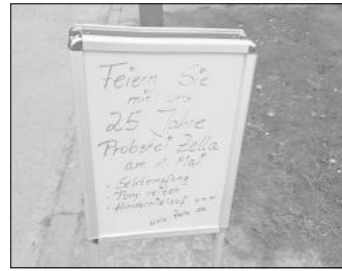 Feiern Sie
mit uns
25 Jahre
Probstei Zella
am 1. Mai
- Sektempfang
- Pony reiten
- Hindernislauf